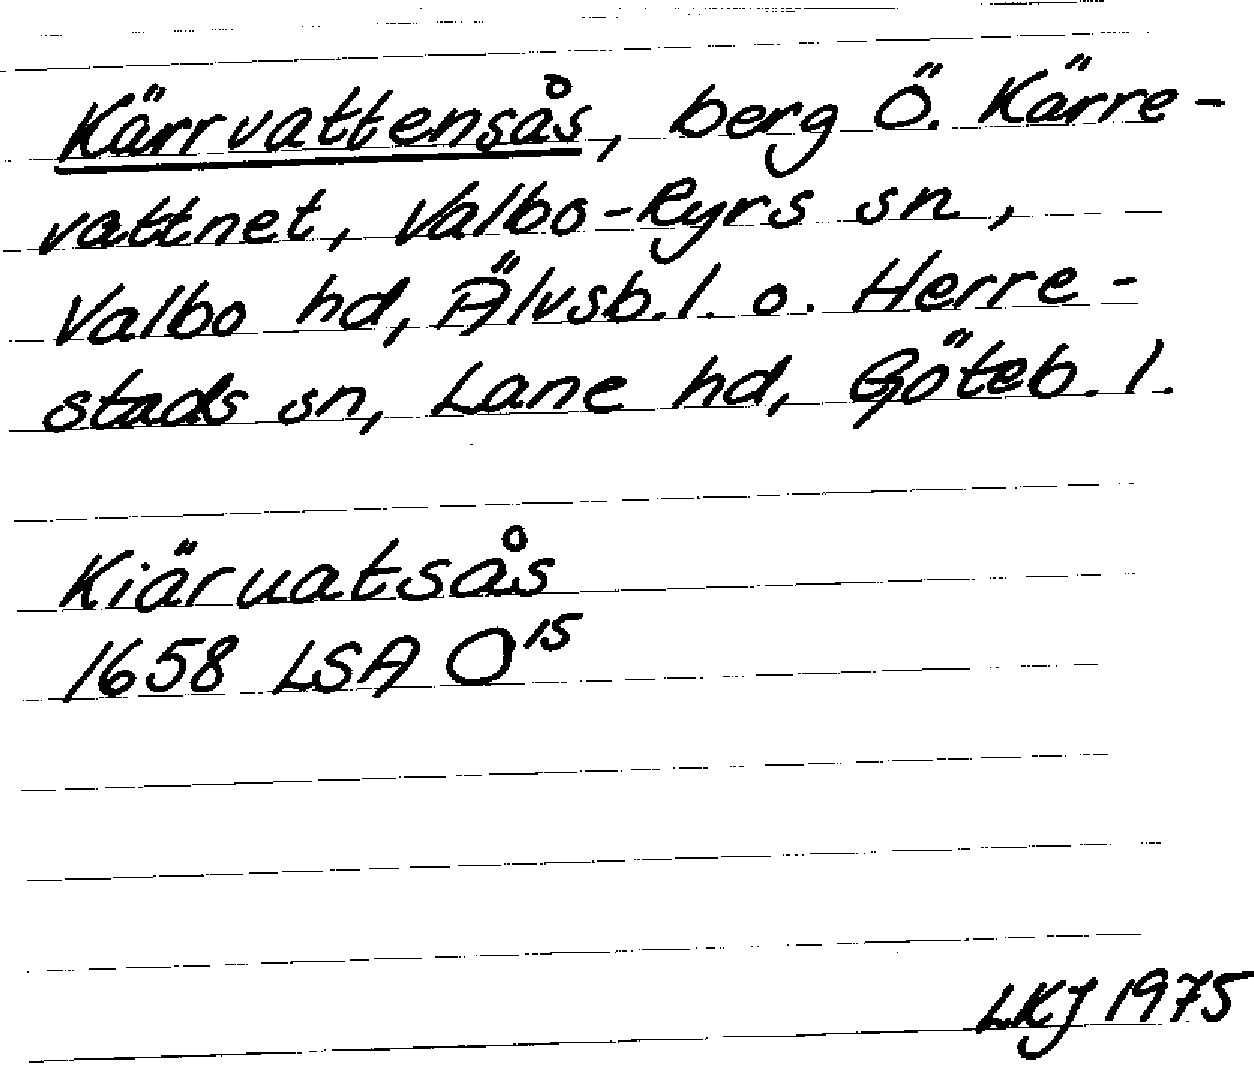 Kärrvattensås, berg Ö. Kärre-
vattnet, Valbo-Ryrs sn,
Valbo hd, Älvsb. l. o. Herre-
stads sn, Lane hd, Göteb. l.
Kiäruatsås
1658 LSA O¹⁵
LKJ 1975